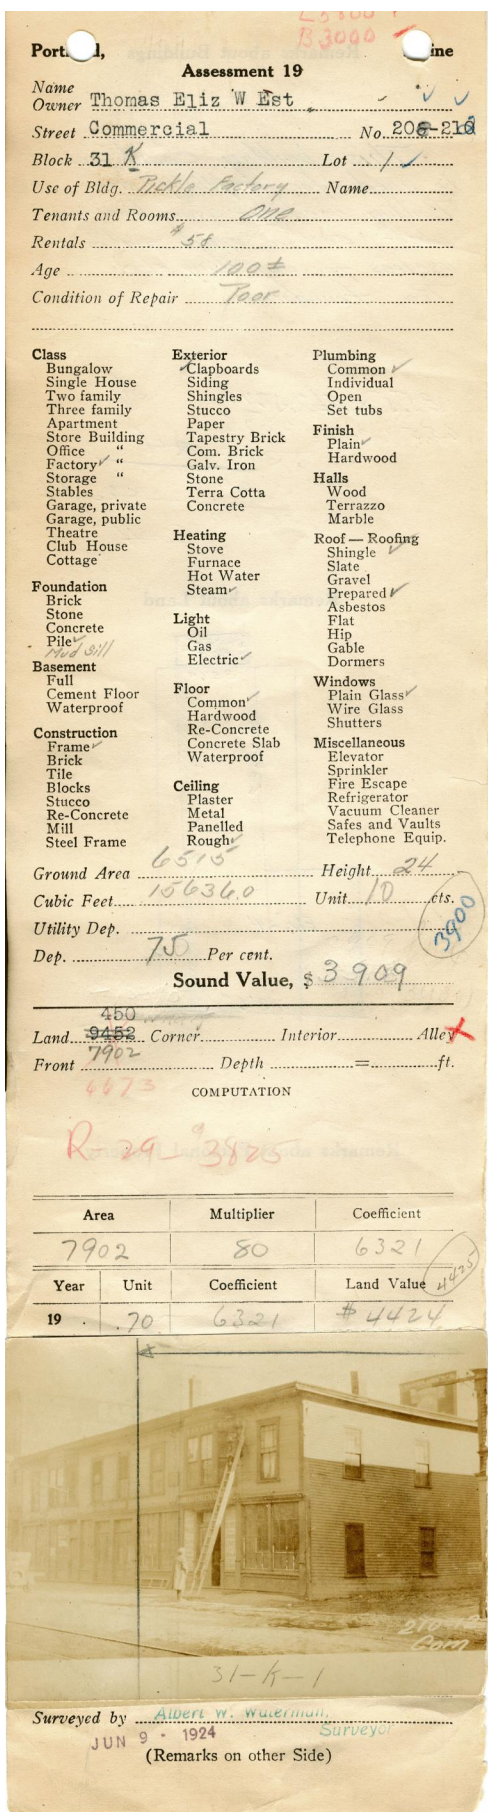 L3800
B3000
Portland, Maine
Assessment 19
Name
Owner Thomas Eliz W Est
Street Commercial No. 206-212
Block 31 K Lot 1
Use of Bldg. Pickle Factory Name
Tenants and Rooms One
Rentals $58
Age 100±
Condition of Repair Poor
Class
Bungalow
Single House
Two family
Three family
Apartment
Store Building
Office "
Factory ✓ "
Storage "
Stables
Garage, private
Garage, public
Theatre
Club House
Cottage
Foundation
Brick
Stone
Concrete
Pile ✓
Mud Sill
Basement
Full
Cement Floor
Waterproof
Construction
Frame ✓
Brick
Tile
Blocks
Stucco
Re-Concrete
Mill
Steel Frame
Exterior
✓ Clapboards
Siding
Shingles
Stucco
Paper
Tapestry Brick
Com. Brick
Galv. Iron
Stone
Terra Cotta
Concrete
Heating
Stove
Furnace
Hot Water
Steam ✓
Light
Oil
Gas
Electric ✓
Floor
Common ✓
Hardwood
Re-Concrete
Concrete Slab
Waterproof
Ceiling
Plaster
Metal
Panelled
Rough ✓
Plumbing
Common ✓
Individual
Open
Set tubs
Finish
Plain ✓
Hardwood
Halls
Wood
Terrazzo
Marble
Roof — Roofing
Shingle ✓
Slate
Gravel
Prepared ✓
Asbestos
Flat
Hip
Gable
Dormers
Windows
Plain Glass ✓
Wire Glass
Shutters
Miscellaneous
Elevator
Sprinkler
Fire Escape
Refrigerator
Vacuum Cleaner
Safes and Vaults
Telephone Equip.
Ground Area 6515 Height 24
Cubic Feet 156360 Unit 10 cts.
3900
Utility Dep.
Dep. 75 Per cent.
Sound Value, $ 3909
450
Land 9452 Corner Interior Alley X
7902
Front Depth = ft.
6673
COMPUTATION
R 29 - $3825
Area Multiplier Coefficient
7902 80 6321
4425
Year Unit Coefficient Land Value
19 .70 6321 $4424
210-12
Com
31-K-1
Surveyed by Albert W. Waterman,
Surveyor
JUN 9 - 1924
(Remarks on other Side)